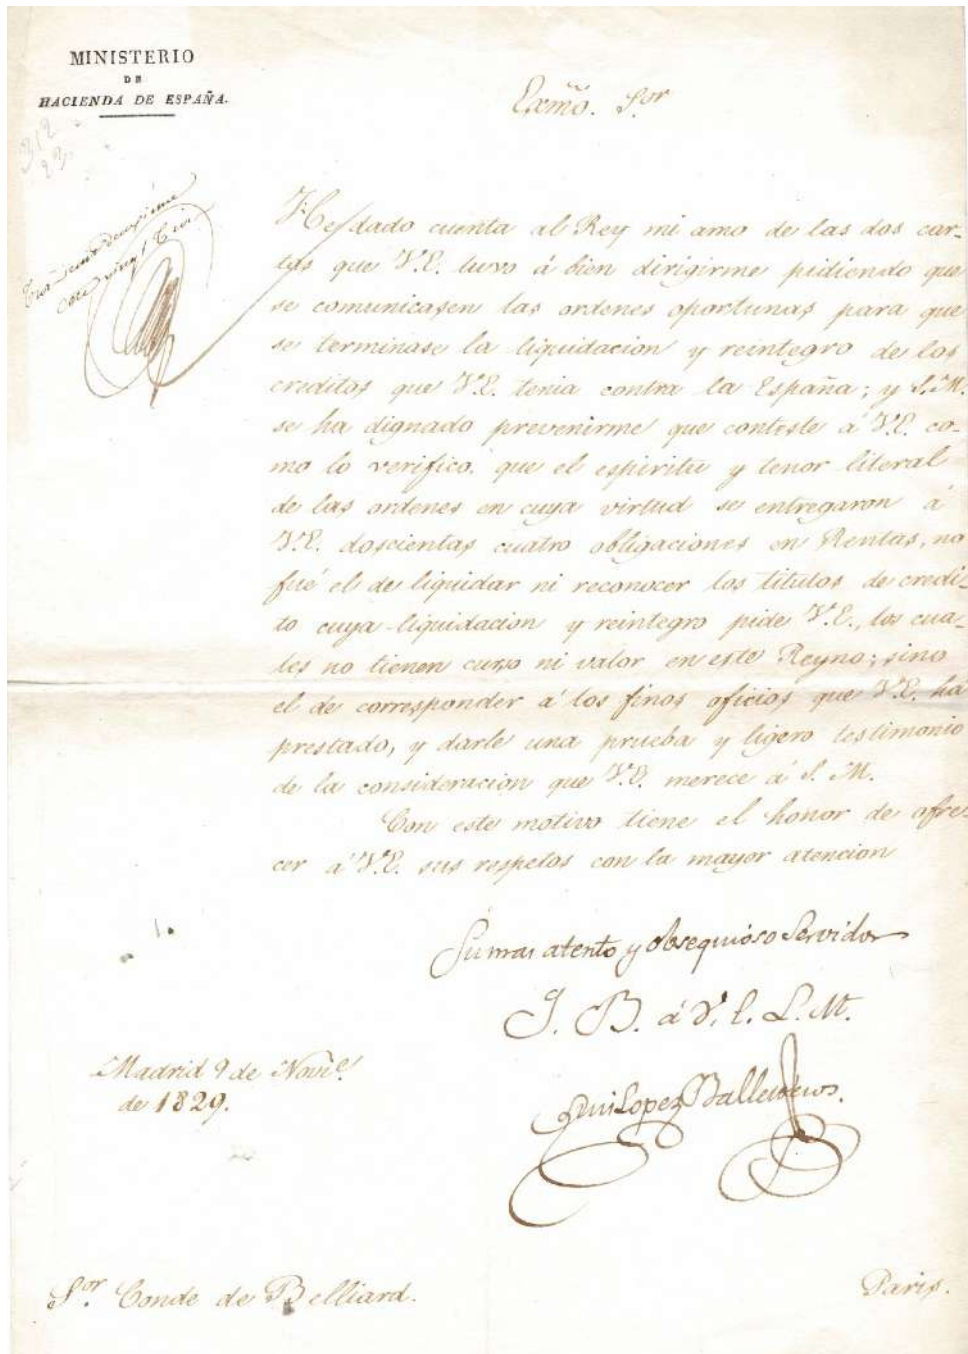 MINISTERIO
DE
HACIENDA DE ESPAÑA.
312
23
Exmõ. Sor
He dado cuenta al Rey mi amo de las dos car-
tas que V.E. tuvo á bien dirigirme pidiendo que
se comunicasen las ordenes oportunas para que
se terminase la liquidacion y reintegro de los
creditos que V.E. tenia contra la España; y S.M.
se ha dignado prevenirme que conteste á V.E. co-
mo lo verifico, que el espiritu y tenor literal
de las ordenes en cuya virtud se entregaron á
V.E. doscientas cuatro obligaciones en Rentas, no
fué el de liquidar ni reconocer los titulos de credi-
to cuya liquidacion y reintegro pide V.E., los cua-
les no tienen curso ni valor en este Reyno; sino
el de corresponder á los finos oficios que V.E. há
prestado, y darle una prueba y ligero testimonio
de la consideracion que V.E. merece á S. M.
Con este motivo tiene el honor de ofre-
cer á V.E. sus respetos con la mayor atencion
Su mas atento y obsequioso Servidor
Q. B. á V. E. L. M.
Luis Lopez Ballesteros.
Madrid 9 de Novie.
de 1829.
Sor. Conde de Belliard.
Paris.